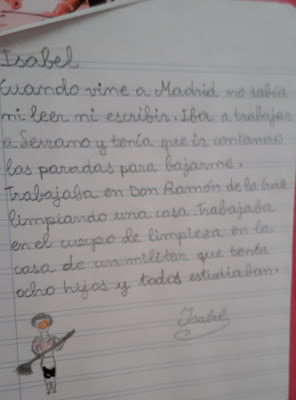 Isabel
Cuando vine a Madrid no sabia
ni leer ni escribir. Iba a trabajar
a Serrano y tenía que ir contando
las paradas para bajarme.
Trabajaba en Don Ramón de la Cruz
limpiando una casa. Trabajaba
en el cuerpo de limpieza en la
casa de un militar que tenia
ocho hijos y todos estudiaban.
Isabel